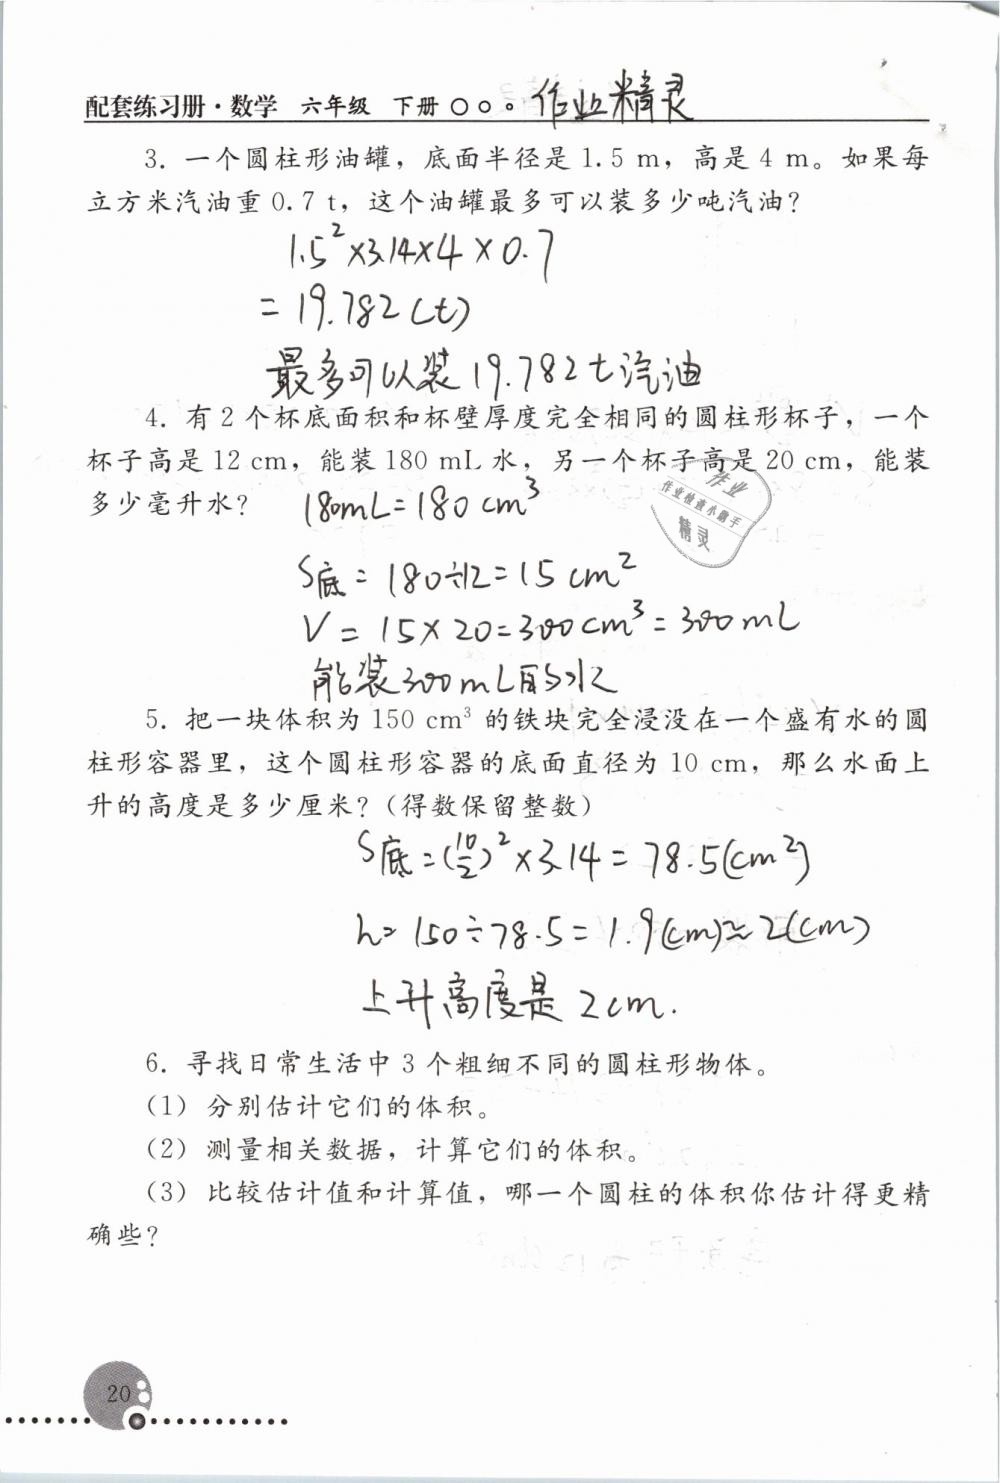 配套练习册·数学 六年级 下册 作业精灵
3. 一个圆柱形油罐，底面半径是 1.5 m，高是 4 m。如果每
立方米汽油重 0.7 t，这个油罐最多可以装多少吨汽油？
1.5²×3.14×4×0.7
=19.782(t)
最多可以装19.782t汽油
4. 有 2 个杯底面积和杯壁厚度完全相同的圆柱形杯子，一个
杯子高是 12 cm，能装 180 mL 水，另一个杯子高是 20 cm，能装
多少毫升水？ 180mL=180cm³
作业
作业检查小帮手
精灵
S底=180÷12=15cm²
V=15×20=300cm³=300mL
能装300mL的水
5. 把一块体积为 150 cm³ 的铁块完全浸没在一个盛有水的圆
柱形容器里，这个圆柱形容器的底面直径为 10 cm，那么水面上
升的高度是多少厘米？（得数保留整数）
S底=(10/2)²×3.14=78.5(cm²)
h=150÷78.5=1.9(cm)≈2(cm)
上升高度是2cm.
6. 寻找日常生活中 3 个粗细不同的圆柱形物体。
（1）分别估计它们的体积。
（2）测量相关数据，计算它们的体积。
（3）比较估计值和计算值，哪一个圆柱的体积你估计得更精
确些？
20